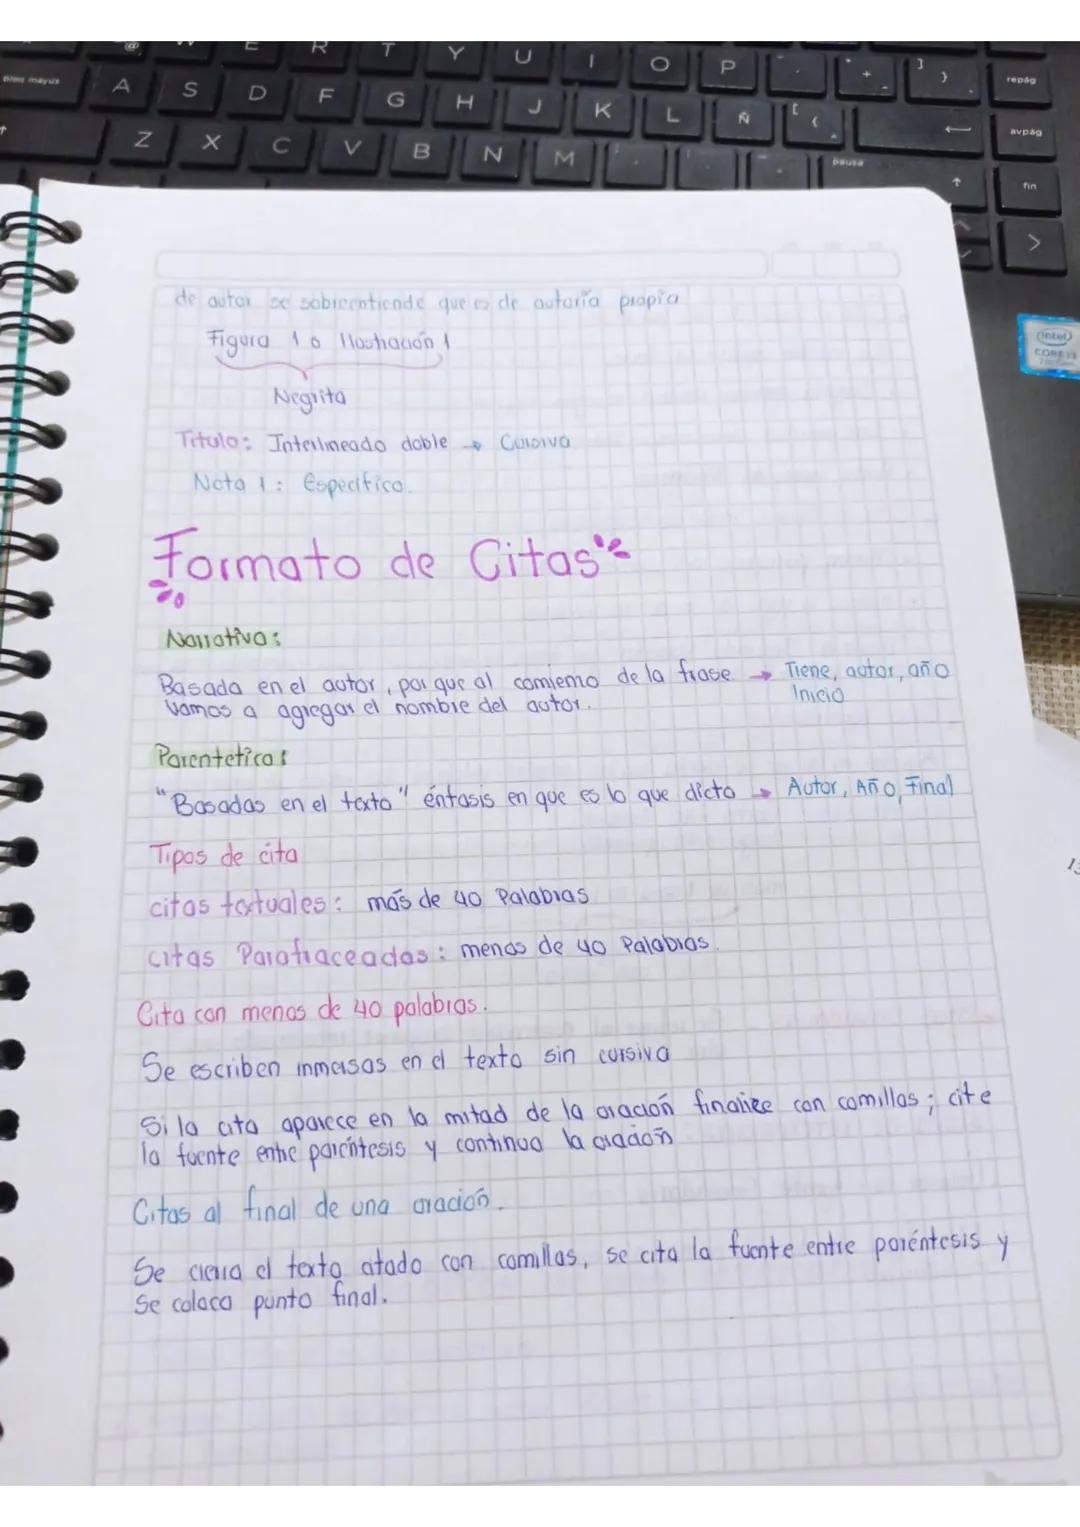 W E R T Y U I O P
Bloq mayús A S D F G H J K L Ñ
repág
Z X C V B N M
avpág
pausa
fin
intel
CORE i3
de autor se sobreentiende que es de autoría propia
Figura 1 o Ilustración 1
Negrita
Titulo: Interlineado doble → Cursiva
Nota 1: Especifico.
Formato de Citas
Narrativa:
Basada en el autor, por que al comienzo de la frase → Tiene, autor, año
vamos a agregar el nombre del autor. Inicio
Parentetica:
"Basadas en el texto" éntasis en que es lo que dicto → Autor, Año, Final
Tipos de cita
citas textuales: más de 40 Palabras
citas Parafraceadas: menos de 40 Palabras.
Cita con menos de 40 palabras.
Se escriben inmersas en el texto sin cursiva
Si la cita aparece en la mitad de la oración finalice con comillas; cite
la fuente entre paréntesis y continua la oración
Citas al final de una oración.
Se cierra el texto citado con comillas, se cita la fuente entre paréntesis y
Se coloca punto final.